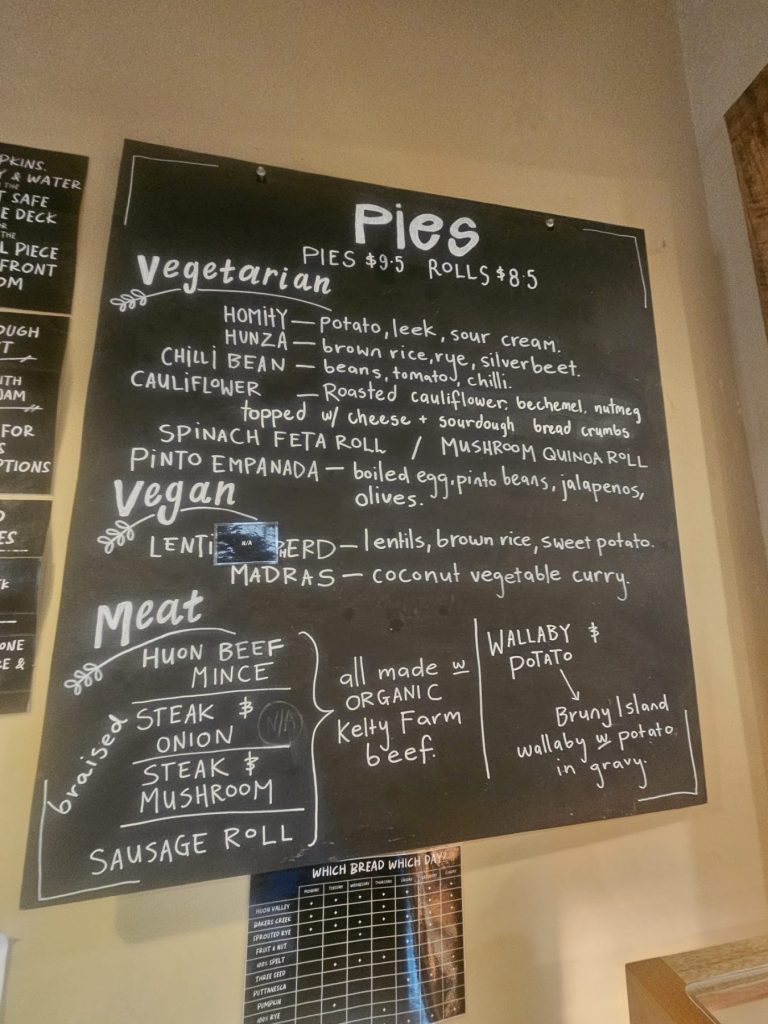 PKINS.
Y & WATER
THE
T SAFE
E DECK
OR
THE
L PIECE
FRONT
OM
OUGH
T
ITH
JAM
FOR
S
PTIONS
ES
ONE
E &
Pies
PIES $9.5 ROLLS $8.5
Vegetarian
HOMITY — potato, leek, sour cream.
HUNZA — brown rice, rye, silverbeet.
CHILLI BEAN — beans, tomato, chilli.
CAULIFLOWER — Roasted cauliflower, bechemel, nutmeg
topped w/ cheese + sourdough bread crumbs
SPINACH FETA ROLL / MUSHROOM QUINOA ROLL
PINTO EMPANADA — boiled egg, pinto beans, jalapenos,
olives.
Vegan
LENTI N/A HERD — lentils, brown rice, sweet potato.
MADRAS — coconut vegetable curry.
Meat
HUON BEEF
MINCE
braised
STEAK &
ONION
N/A
STEAK &
MUSHROOM
SAUSAGE ROLL
all made w
ORGANIC
Kelty Farm
beef.
WALLABY &
POTATO
Bruny Island
wallaby w potato
in gravy.
WHICH BREAD WHICH DAY?
MONDAY TUESDAY WEDNESDAY THURSDAY FRIDAY SATURDAY SUNDAY
HUON VALLEY
BAKERS CREEK
SPROUTED RYE
FRUIT & NUT
100% SPELT
THREE SEED
PUTTANESCA
PUMPKIN
100% RYE